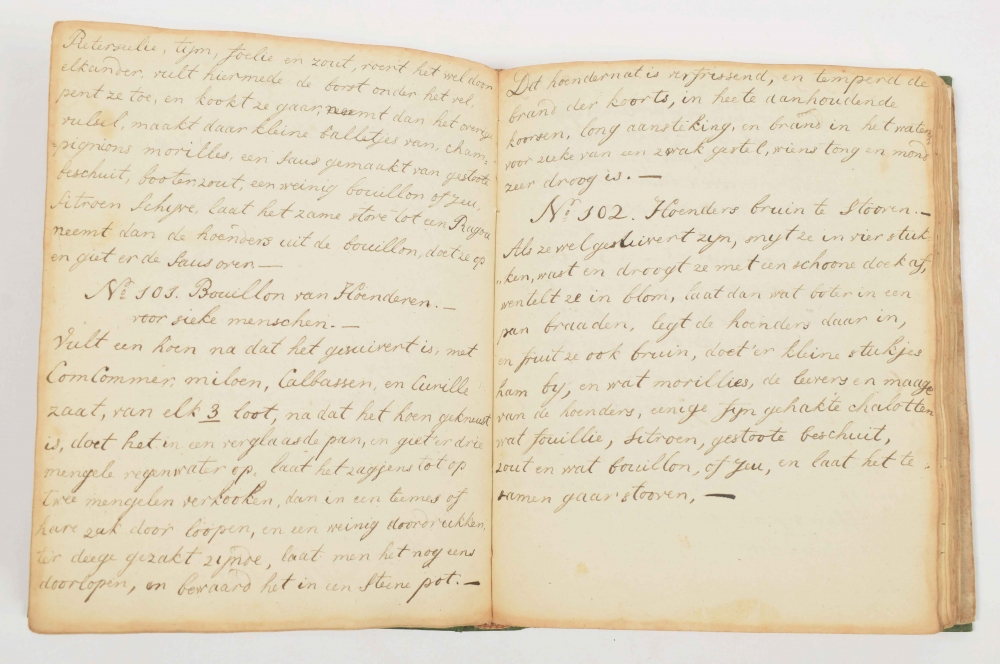 Pietersulie, tijm, foelie en zout, roert het wel door
elkander, vult hiermede de borst onder het vel,
pent ze toe, en kookt ze gaar, neemt dan het overige
vulsel, maakt daar kleine balletjes van, cham=
=pignions morilles, een saus gemaakt van gestoote
beschuit, booter, zout, een weinig bouillon of Jeu,
Sitroen Schijve, laat het zame store tot een Ragou
neemt dan de hoenders uit de bouillon, doet ze op
en giet er de saus over. —
Nº 101. Bouillon van Hoenderen. —
voor sieke menschen. —
Vult een hoen na dat het gesuivert is, met
ComCommer, miloen, Calbassen, en Curille
zaat, van elk 3 loot, na dat het hoen gekneust
is, doet het in een verglaasde pan, en giet er drie
mengele regenwater op, laat het zagjens tot op
twee mengelen verkooken, dan in een teemes of
hare zak door loopen, en een weinig doordrukken,
ter deege gezakt zijnde, laat men het nog eens
doorlopen, en bewaard het in een Steene pot. —
Dit hoendernat is verfrissend, en temperd de
brand der koorts, in heete aanhoudende
koorsen, long aansteking, en brand in het water,
voor zieke van een zwak gestel, wiens tong en mond
zeer droog is. —
Nº 102. Hoenders bruin te Stooren. —
Als ze wel gesuivert zyn, snyt ze in vier stuk-
"ken, wast en droogt ze met een schoone doek af,
wentelt ze in blom, laat dan wat boter in een
pan braaden, legt de hoenders daar in,
en fruit ze ook bruin, doet er kleine stukjes
ham by, en wat morillies, de levers en maage
van de hoenders, eenige fyn gehakte chalotten
wat fouillie, Sitroen, gestoote beschuit,
zout en wat bouillon, of Jeu, en laat het te
samen gaar stooren, —